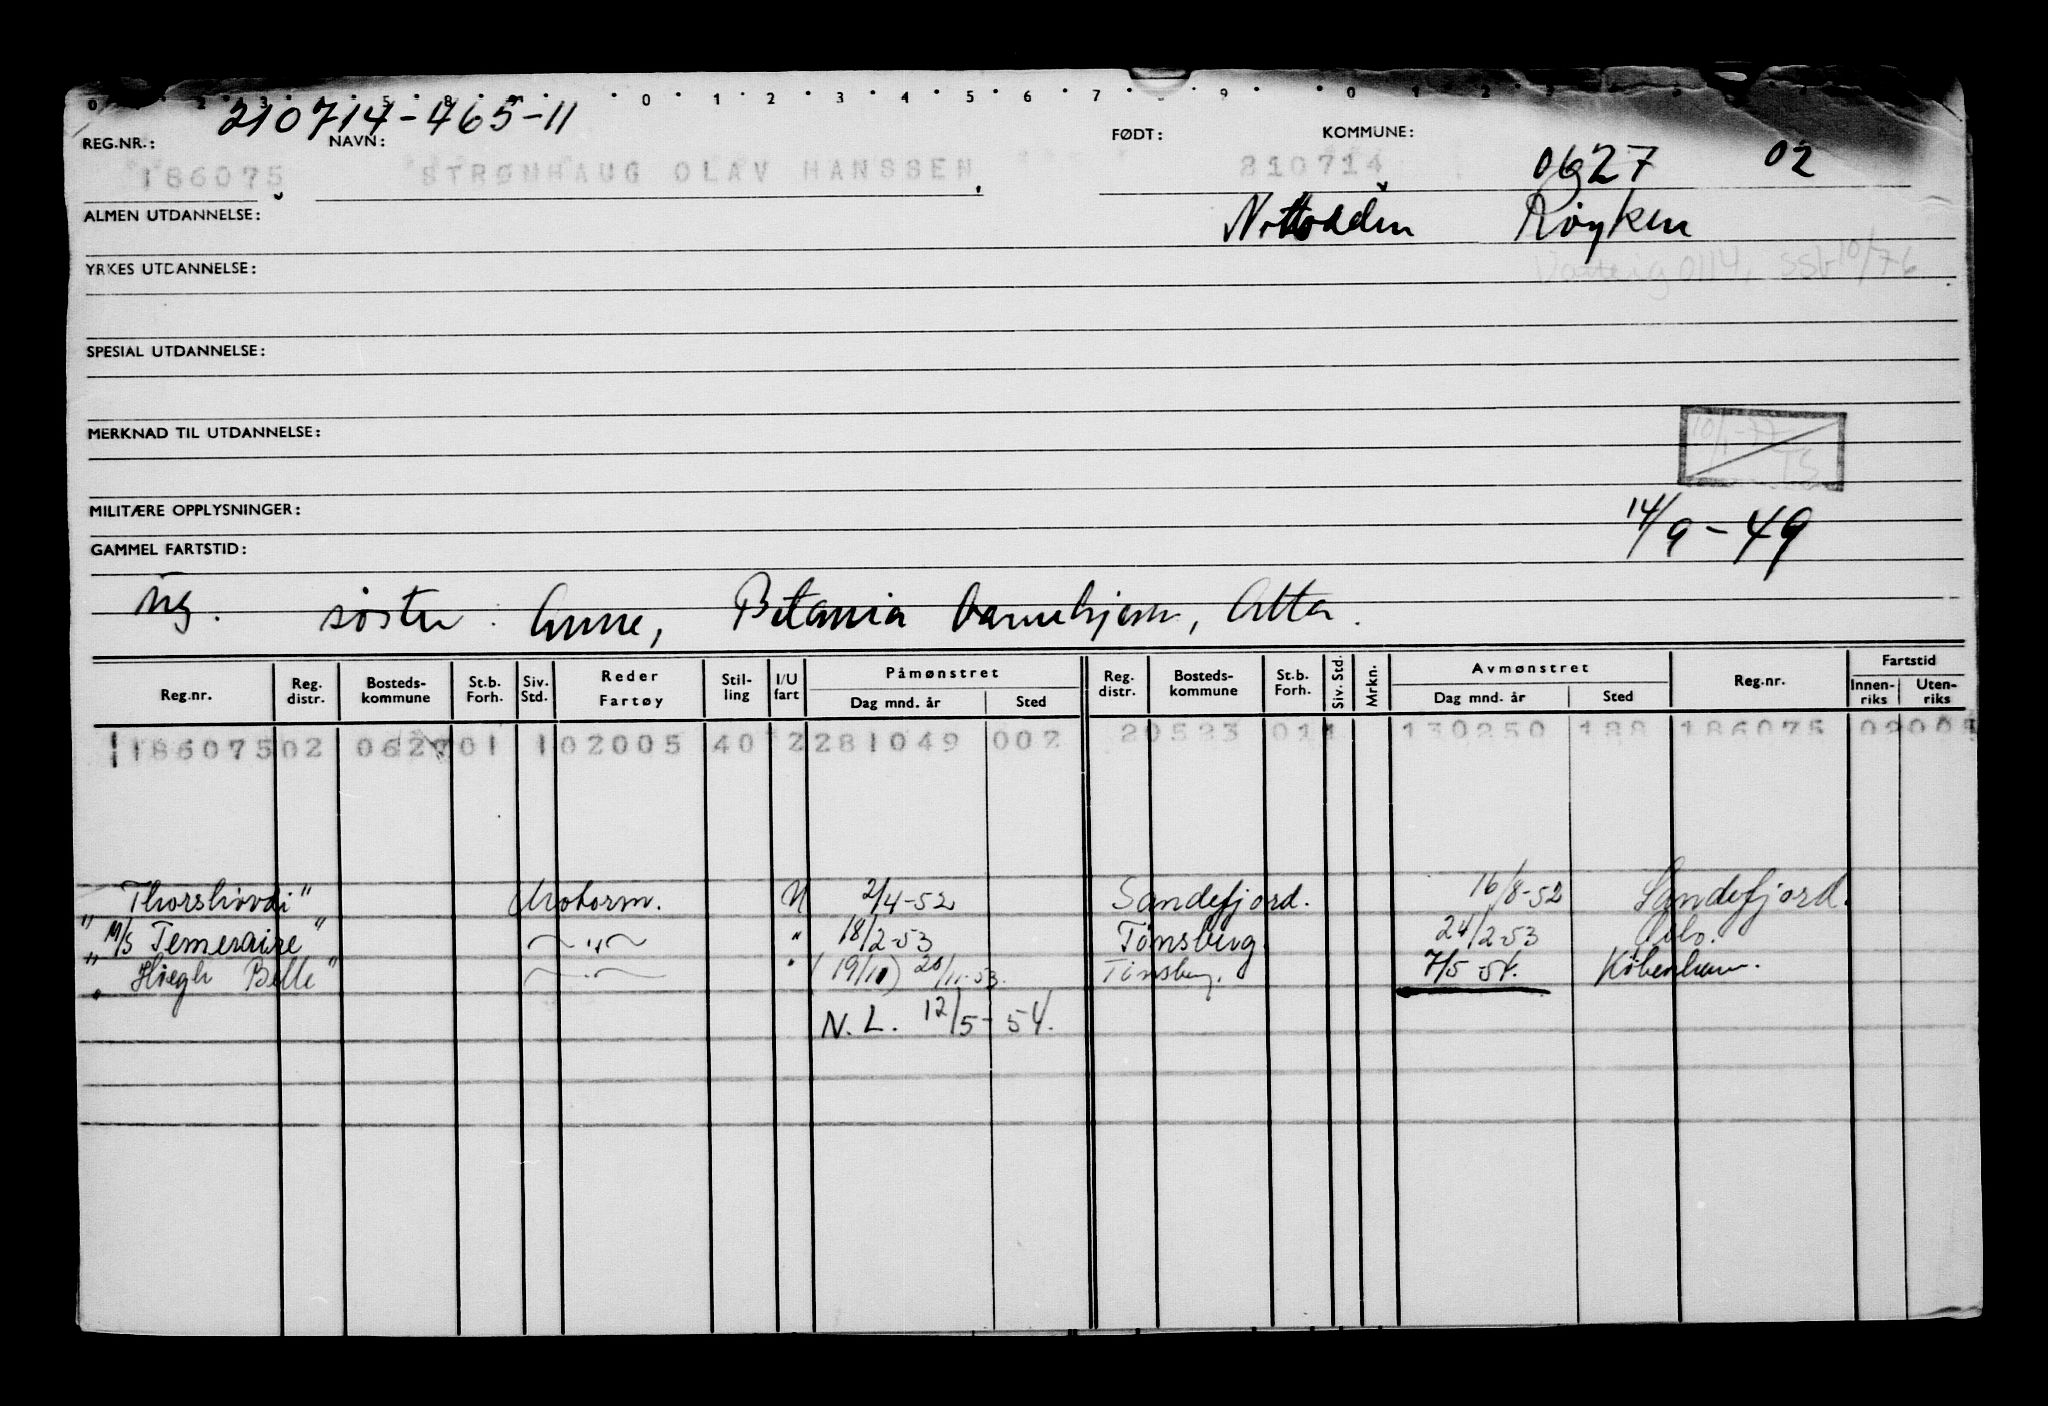 210714-465-11
REG.NR.: NAVN: FØDT: KOMMUNE:
186075 STRØMHAUG OLAV HANSSEN 210714 0627 02
ALMEN UTDANNELSE: Nottodden Røyken
YRKES UTDANNELSE: 0114, SSB 10/76
SPESIAL UTDANNELSE:
MERKNAD TIL UTDANNELSE: 10/1-77
TS
MILITÆRE OPPLYSNINGER: 14/9-49
GAMMEL FARTSTID:
ug. søster: Anne, Betania barnehjem, Alta.
Reg.nr. Reg. distr. Bosteds-kommune St.b. Forh. Siv. Std. Reder Fartøy Stil-ling I/U fart Påmønstret Dag mnd. år Sted Reg. distr. Bosteds-kommune St.b. Forh. Siv. Std. Mrkn. Avmønstret Dag mnd. år Sted Reg.nr. Fartstid Innen-riks Uten-riks
186075 02 0627 01 1 02005 40 2 281049 002 2 0523 01 1 130250 188 186075 09005
"Thorshövdi" Motorm. U 2/4-52 Sandefjord. 16/8-52 Sandefjord.
" M/S Temeraire" " " 18/2-53 Tønsberg. 24/2-53 Oslo.
" Höegh Belle" " (19/10) 20/11-53. Tönsberg. 7/5 54. København.
N.L. 12/5-54.